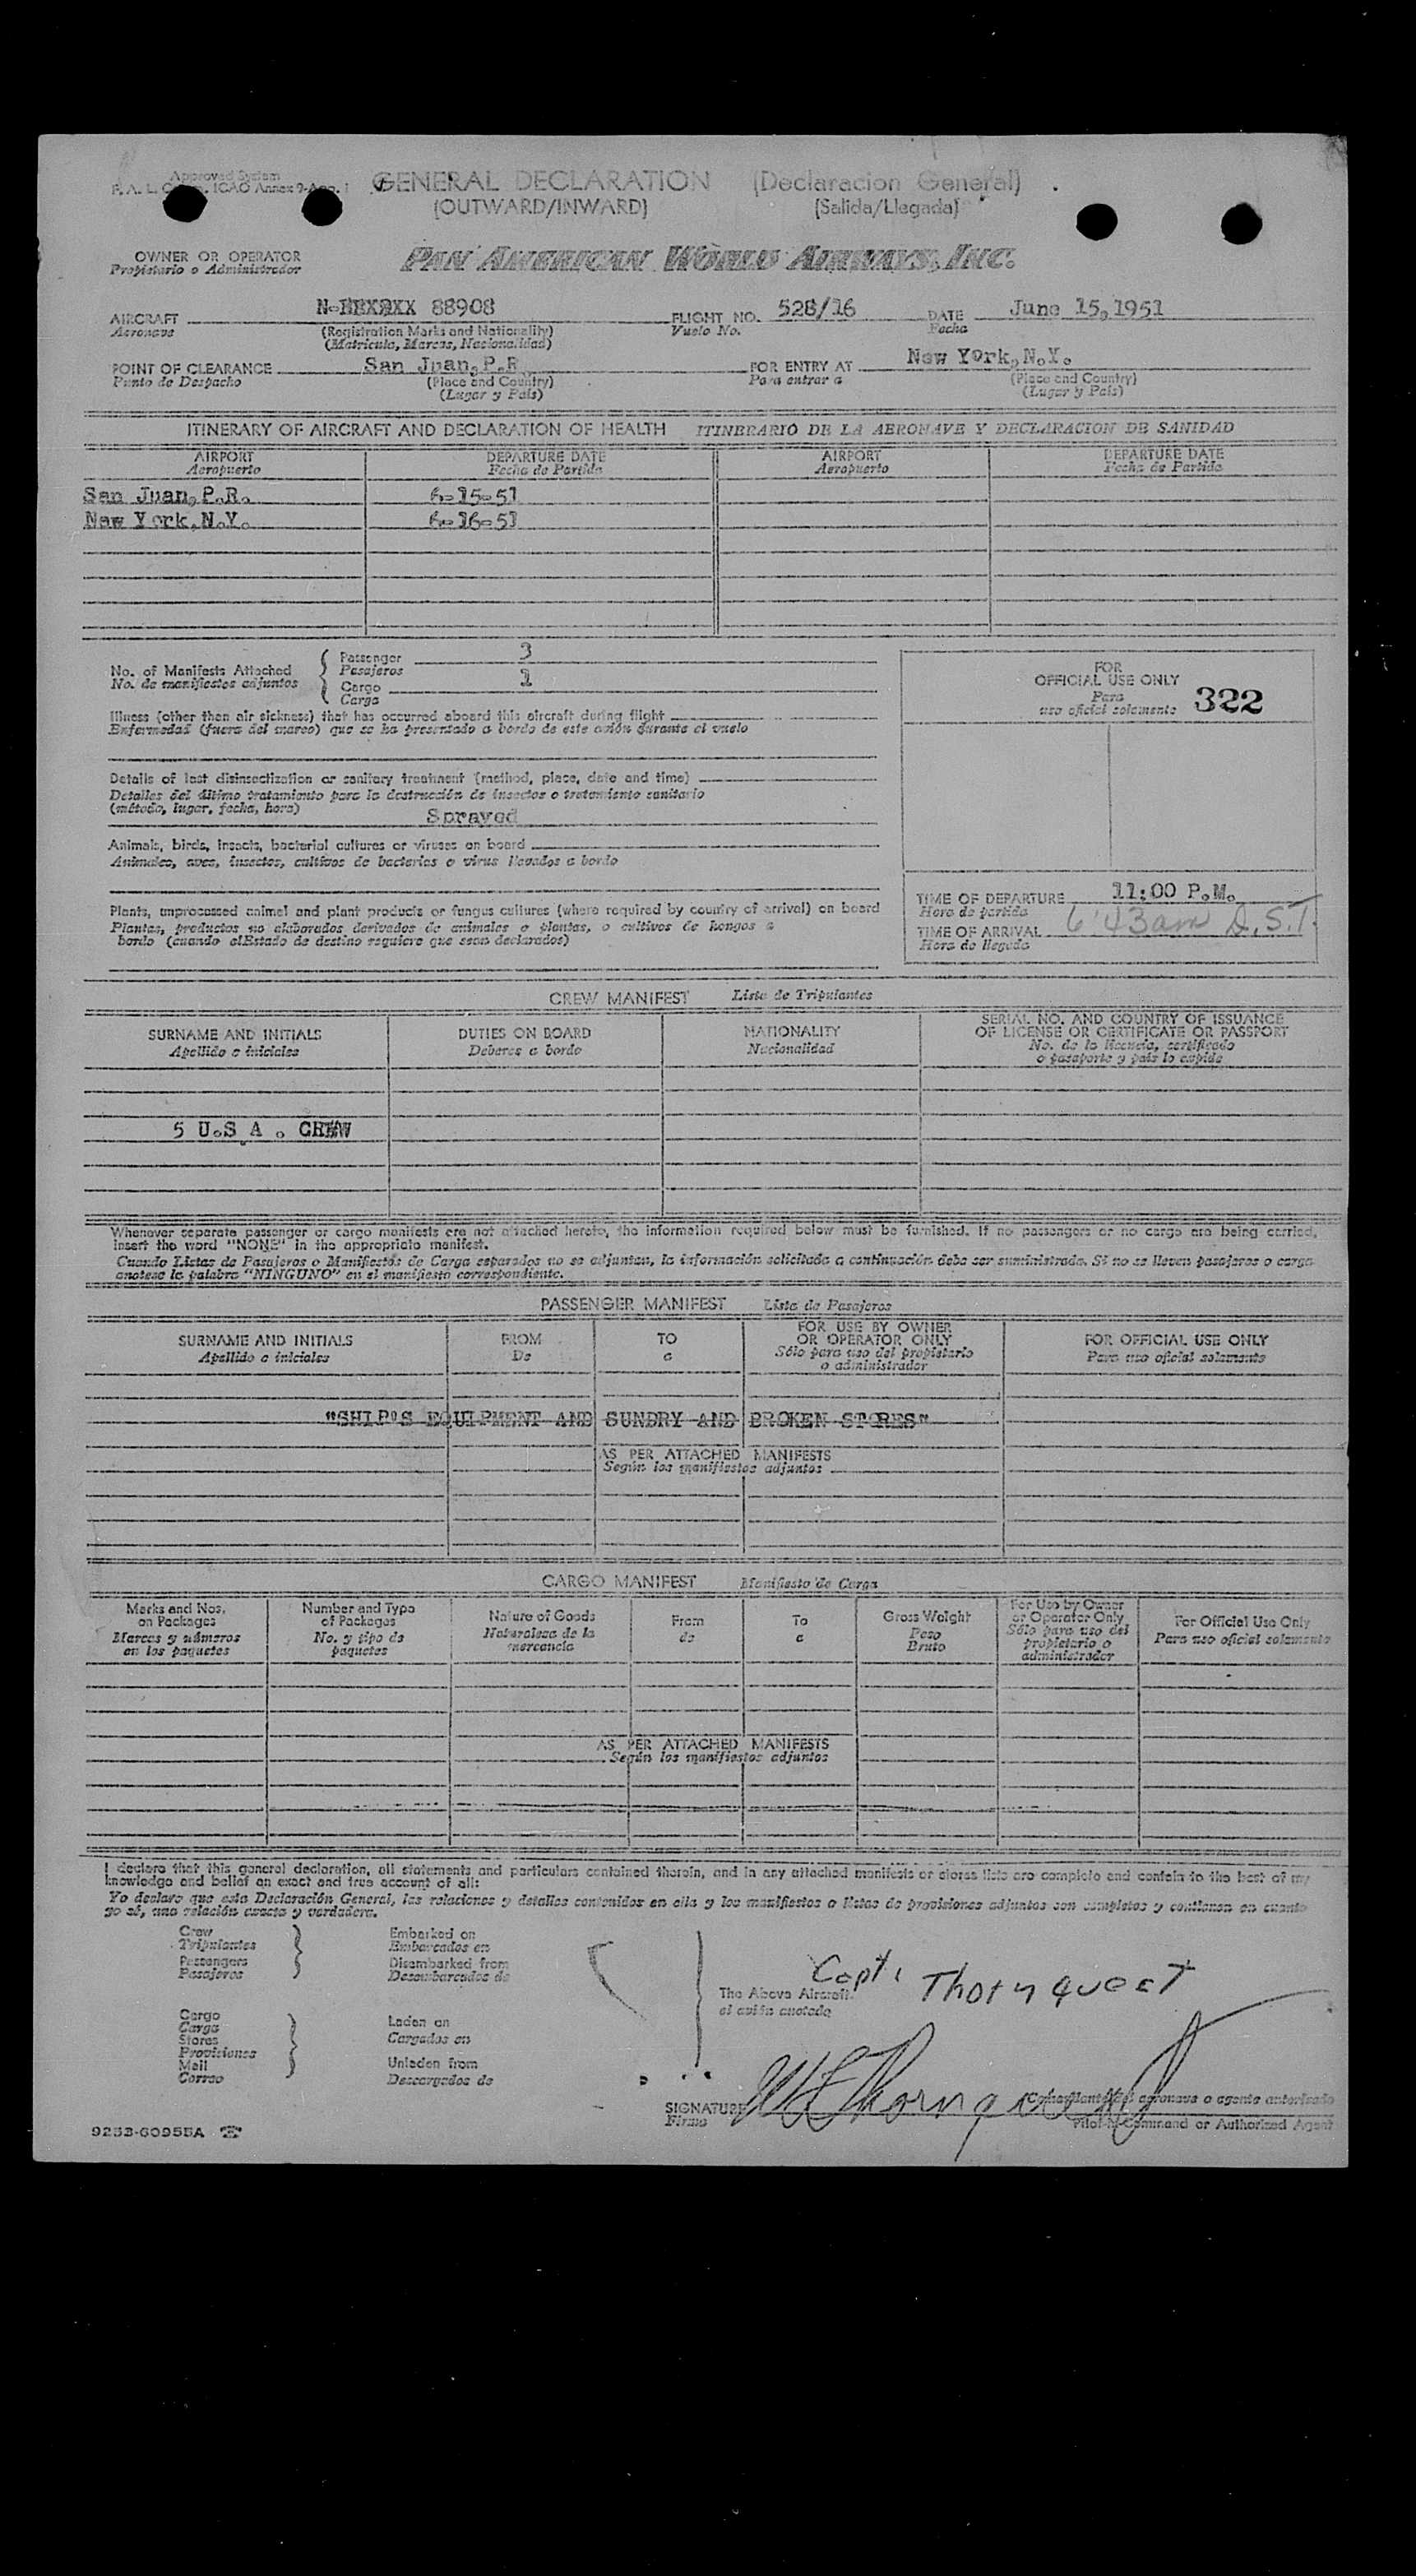 Approved System
GENERAL DECLARATION (Declaracion General)
(OUTWARD/INWARD) (Salida/Llegada)
OWNER OR OPERATOR PAN AMERICAN WORLD AIRWAYS, INC.
Propietario o Administrador
AIRCRAFT 88908 FLIGHT NO. 528/16 DATE June 15, 1951
Aeronave (Registration Marks and Nationality) Vuelo No. Fecha
(Matricula, Marcas, Nacionalidad)
POINT OF CLEARANCE San Juan, P.R. FOR ENTRY AT New York, N.Y.
Punto de Despacho (Place and Country) Para entrar a (Place and Country)
(Lugar y País) (Lugar y País)
ITINERARY OF AIRCRAFT AND DECLARATION OF HEALTH ITINERARIO DE LA AERONAVE Y DECLARACION DE SANIDAD
AIRPORT DEPARTURE DATE AIRPORT DEPARTURE DATE
Aeropuerto Fecha de Partida Aeropuerto Fecha de Partida
San Juan, P.R. 6-15-51
New York, N.Y. 6-16-51
No. of Manifests Attached Passenger 3
No. de manifiestos adjuntos Pasajeros
Cargo 1
Carga
FOR
OFFICIAL USE ONLY
Para
uso oficial solamente 322
Illness (other than air sickness) that has occurred aboard this aircraft during flight
Enfermedad (fuera del mareo) que se ha presentado a bordo de este avión durante el vuelo
Details of last disinsectization or sanitary treatment (method, place, date and time)
Detalles del último tratamiento para la destrucción de insectos o tratamiento sanitario
(método, lugar, fecha, hora)
Sprayed
Animals, birds, insects, bacterial cultures or viruses on board
Animales, aves, insectos, cultivos de bacterias o virus llevados a bordo
Plants, unprocessed animal and plant products or fungus cultures (where required by country of arrival) on board
Plantas, productos no elaborados derivados de animales o plantas, o cultivos de hongos a
bordo (cuando el Estado de destino requiere que sean declarados)
TIME OF DEPARTURE 11:00 P.M.
Hora de partida
TIME OF ARRIVAL 6:43am D.S.T.
Hora de llegada
CREW MANIFEST Lista de Tripulantes
SURNAME AND INITIALS DUTIES ON BOARD NATIONALITY SERIAL NO. AND COUNTRY OF ISSUANCE
OF LICENSE OR CERTIFICATE OR PASSPORT
Apellido e iniciales Deberes a bordo Nacionalidad No. de la licencia, certificado
o pasaporte y país lo expide
5 U.S A . CREW
Whenever separate passenger or cargo manifests are not attached hereto, the information required below must be furnished. If no passengers or no cargo are being carried,
insert the word "NONE" in the appropriate manifest.
Cuando Listas de Pasajeros o Manifiestos de Carga separados no se adjuntan, la información solicitada a continuación debe ser suministrada. Si no se llevan pasajeros o carga
anotese la palabra "NINGUNO" en el manifiesto correspondiente.
PASSENGER MANIFEST Lista de Pasajeros
SURNAME AND INITIALS FROM TO FOR USE BY OWNER
OR OPERATOR ONLY FOR OFFICIAL USE ONLY
Apellido e iniciales De a Sólo para uso del propietario
o administrador Para uso oficial solamente
"SHIP'S EQUIPMENT AND SUNDRY AND BROKEN STORES"
AS PER ATTACHED MANIFESTS
Según los manifiestos adjuntos
CARGO MANIFEST Manifiesto de Carga
Marks and Nos.
on Packages
Marcas y números
en los paquetes
Number and Type
of Packages
No. y tipo de
paquetes
Nature of Goods
Naturaleza de la
mercancía
From
de
To
a
Gross Weight
Peso
Bruto
For Use by Owner
or Operator Only
Sólo para uso del
propietario o
administrador
For Official Use Only
Para uso oficial solamente
AS PER ATTACHED MANIFESTS
Según los manifiestos adjuntos
I declare that this general declaration, all statements and particulars contained therein, and in any attached manifests or stores lists are complete and contain to the best of my
knowledge and belief an exact and true account of all:
Yo declaro que esta Declaración General, las relaciones y detalles contenidos en ella y los manifiestos o listas de provisiones adjuntos son completos y contienen en cuanto
yo sé, una relación exacta y verdadera.
Crew
Tripulantes
Passengers
Pasajeros
Embarked on
Embarcados en
Disembarked from
Desembarcados de
Cargo
Carga
Stores
Provisiones
Mail
Correo
Laden on
Cargados en
Unladen from
Descargados de
Capt. Thornquest
The Above Aircraft.
el avión anotado
SIGNATURE
Firma
aeronave o agente autorizado
Pilot-in-Command or Authorized Agent
9253-60955A